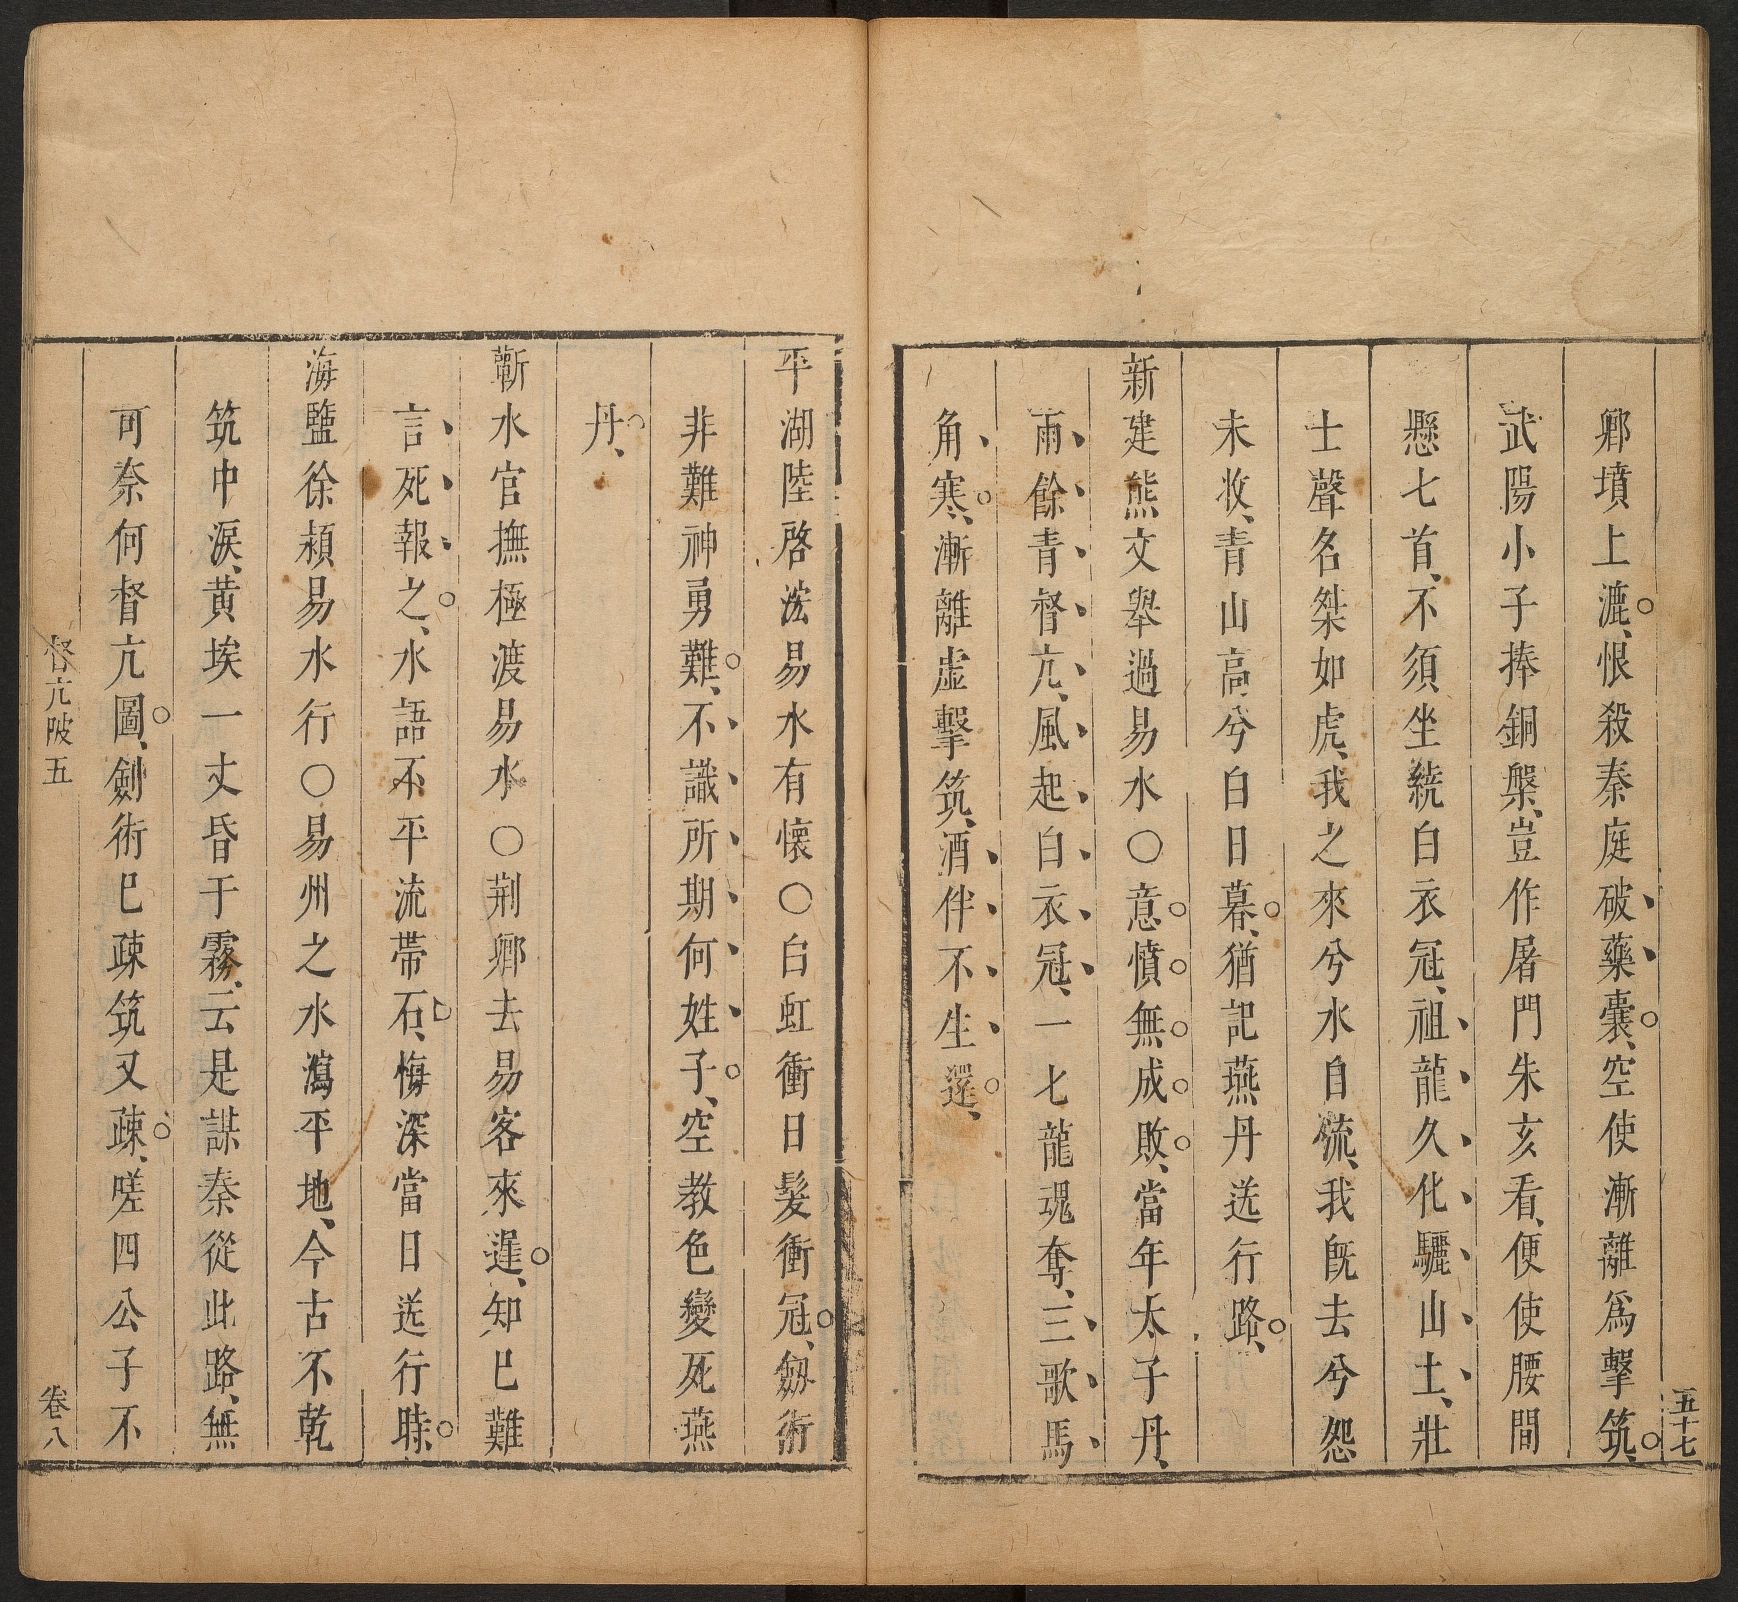 五十七
鄉墳上漉、恨殺秦庭破藥囊、空使漸離爲擊筑、
武陽小子捧銅槃、豈作屠門朱亥看、便使腰間
懸七首、不須坐統白衣冠、祖龍久化驪山土、壯
士聲名桀如虎、我之來兮水自流、我旣去兮怨
未收、青山高兮白日暮、猶記燕丹送行路、
新建熊文舉過易水○意憤無成敗、當年太子丹、
雨餘青督亢、風起白衣冠、一七龍魂奪、三歌馬
角寒、漸離虛擊筑、酒伴不生還、
平湖陸啓浤易水有懷○白虹衝日髮衝冠、劔術
非難神勇難、不識所期何姓子、空教色變死燕
丹、
蘄水官撫極渡易水○荆卿去易客來遲、知已難
言死報之、水語不平流帶石、悔深當日送行時、
海鹽徐熲易水行○易州之水瀉平地、今古不乾
筑中淚、黄埃一丈昏于霧、云是謀秦從此路、無
可奈何督亢圖、劍術已疎筑又疎、嗟四公子不
督亢陂五
卷八